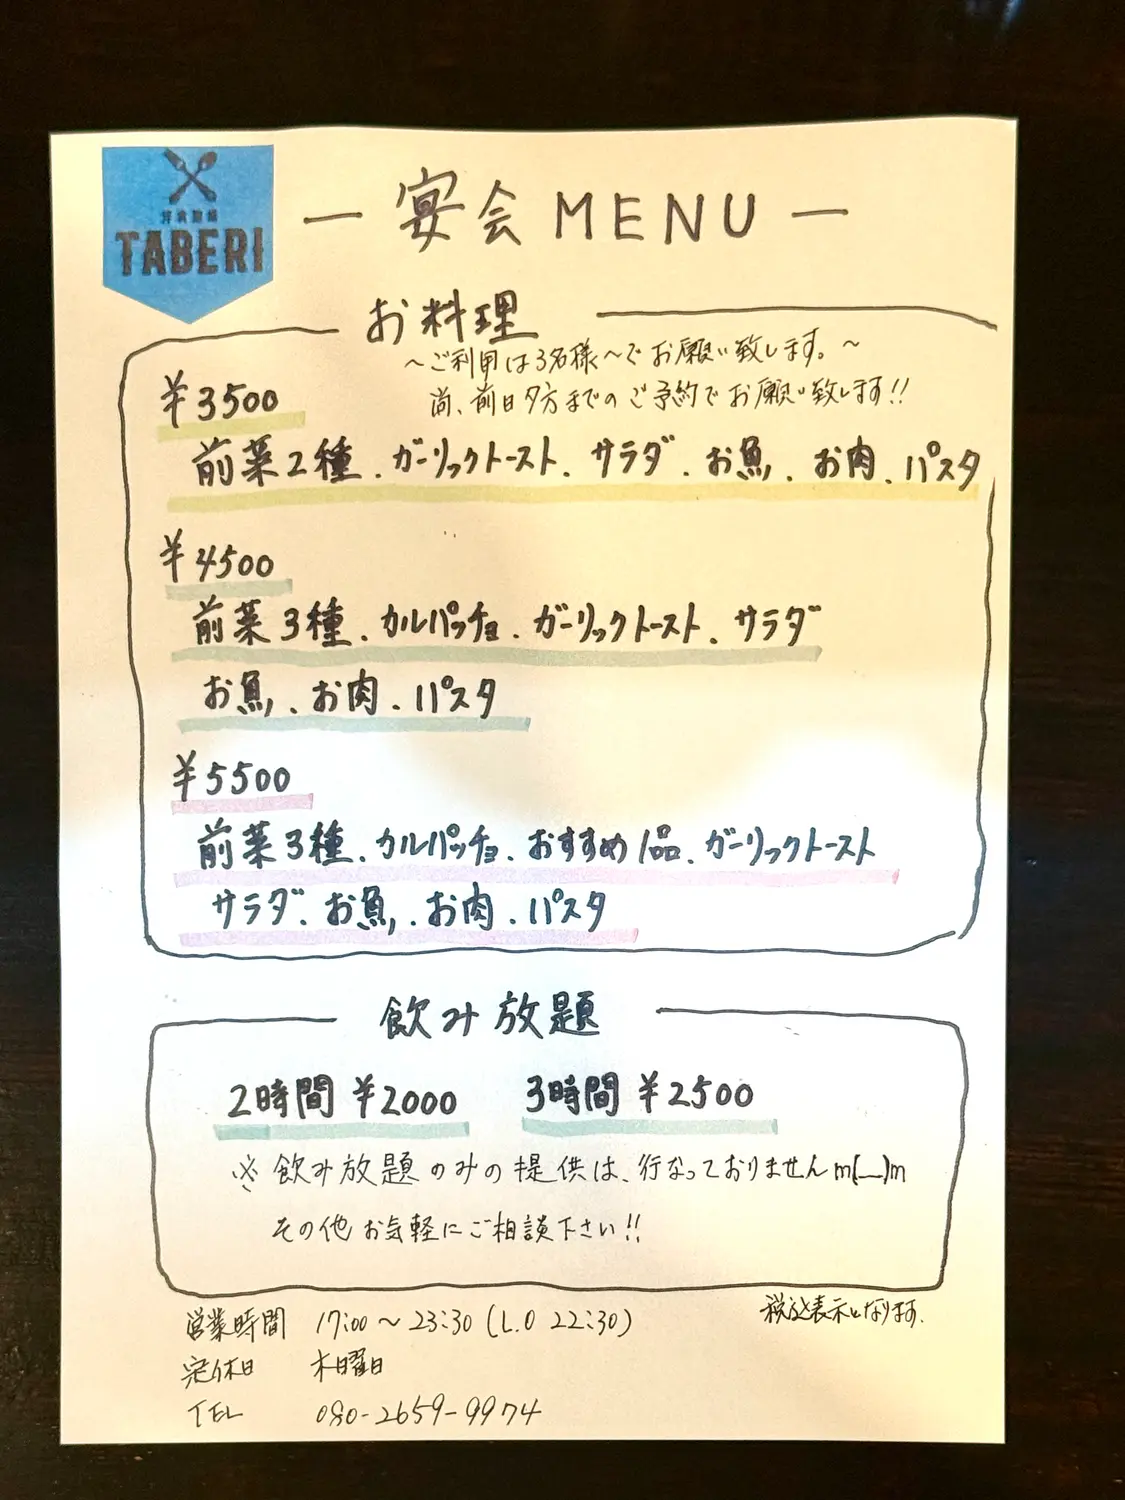 洋食酒場
TABERI
― 宴会 MENU ―
お料理
～ご利用は3名様～でお願い致します。～
尚、前日夕方までのご予約でお願い致します!!
¥3500
前菜2種、ガーリックトースト、サラダ、お魚、お肉、パスタ
¥4500
前菜3種、カルパッチョ、ガーリックトースト、サラダ
お魚、お肉、パスタ
¥5500
前菜3種、カルパッチョ、おすすめ1品、ガーリックトースト
サラダ、お魚、お肉、パスタ
飲み放題
2時間 ¥2000 3時間 ¥2500
※飲み放題のみの提供は、行なっておりませんm(__)m
その他お気軽にご相談下さい!!
税込表示となります.
営業時間 17:00～23:30 (L.O 22:30)
定休日 木曜日
TEL 080-2659-9974